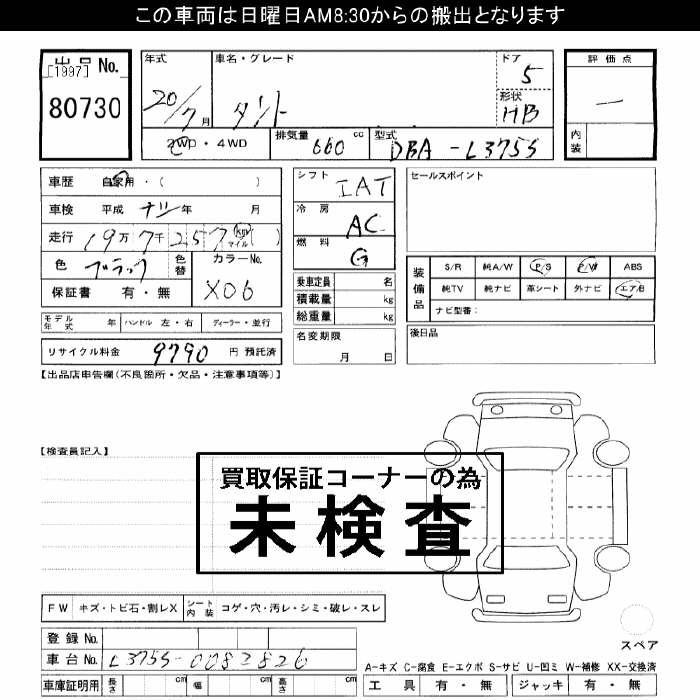 この車両は日曜日AM8:30からの搬出となります
出品 No.
[1997]
80730
年式
20/7月
車名・グレード
タント
ドア
5
形状
HB
評価点
—
内装
2WD・4WD
排気量 660 cc
型式 DBA-L375S
車歴 自家用・( )
車検 平成 ナシ 年 月
走行 19万7千257 km マイル ( )
色 ブラック
色替
カラーNo.
X06
保証書 有・無
シフト
IAT
冷房
AC
燃料
G
乗車定員 名
積載量 kg
総重量 kg
セールスポイント
装備品
S/R 純A/W P/S P/W ABS
純TV 純ナビ 革シート 外ナビ エアB
ナビ型番:
モデル年式 年 ハンドル 左・右 ディーラー・並行
リサイクル料金 9790 円 預託済
名変期限
月 日
後日品
【出品店申告欄(不良箇所・欠品・注意事項等)】
【検査員記入】
買取保証コーナーの為
未検査
FW キズ・トビ石・割レX シート内装 コゲ・穴・汚レ・シミ・破レ・スレ
登録No.
車台No. L375S-0082826
車庫証明用 長さ cm 幅 cm 高さ cm
スペア
A-キズ C-腐食 E-エクボ S-サビ U-凹ミ W-補修 XX-交換済
工具 有・無 ジャッキ 有・無